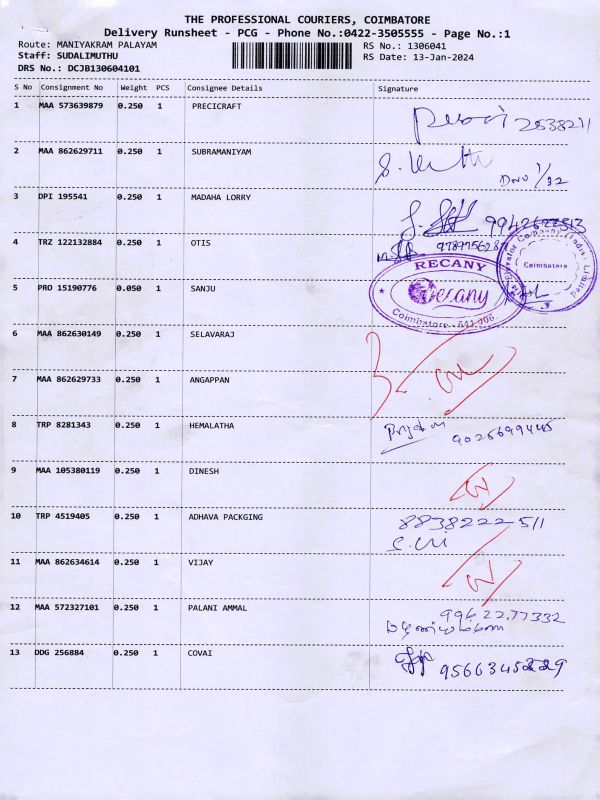 THE PROFESSIONAL COURIERS, COIMBATORE
Delivery Runsheet - PCG - Phone No.:0422-3505555 - Page No.:1
Route: MANIYAKRAM PALAYAM
RS No.: 1306041
Staff: SUDALIMUTHU
RS Date: 13-Jan-2024
DRS No.: DCJB130604101
S No Consignment No Weight PCS Consignee Details Signature
1 MAA 573639879 0.250 1 PRECICRAFT
2538211
2 MAA 862629711 0.250 1 SUBRAMANIYAM
1/32
3 DPI 195541 0.250 1 MADAHA LORRY
4 TRZ 122132884 0.250 1 OTIS
RECANY
Recany
Coimbatore - 641 006.
Coimbatore
5 PRO 15190776 0.050 1 SANJU
6 MAA 862630149 0.250 1 SELAVARAJ
7 MAA 862629733 0.250 1 ANGAPPAN
8 TRP 8281343 0.250 1 HEMALATHA
9025699445
9 MAA 105380119 0.250 1 DINESH
10 TRP 4519405 0.250 1 ADHAVA PACKGING
8838222511
11 MAA 862634614 0.250 1 VIJAY
12 MAA 572327101 0.250 1 PALANI AMMAL
13 DDG 256884 0.250 1 COVAI